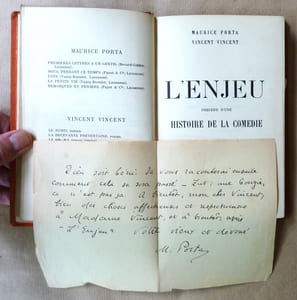 MAURICE PORTA
PREMIÈRES LETTRES A UN GENTIL
Lausanne).
NOUS, PENDANT CE TEMPS (Payot & Cie, Lausanne).
Lausanne).
LA PETITE VIE
REMARQUES ET PENSÉES (Payot & Cie, Lausanne).
VINCENT VINCENT
LE
LA DÉCEVANTE
MAURICE PORTA
VINCENT VINCENT
L'ENJEU
PRÉCÉDÉ D'UNE
HISTOIRE DE LA COMÉDIE
Dieu soit béni. Je vous raconterai ensuite
comment cela se sera passé.
ça n'est pas ça. A bientôt, mon cher Vincent,
bien des choses affectueuses et respectueuses
à Madame Vincent, et à bientôt, après
"L'Enjeu". Votre vieux et dévoué
M. Porta